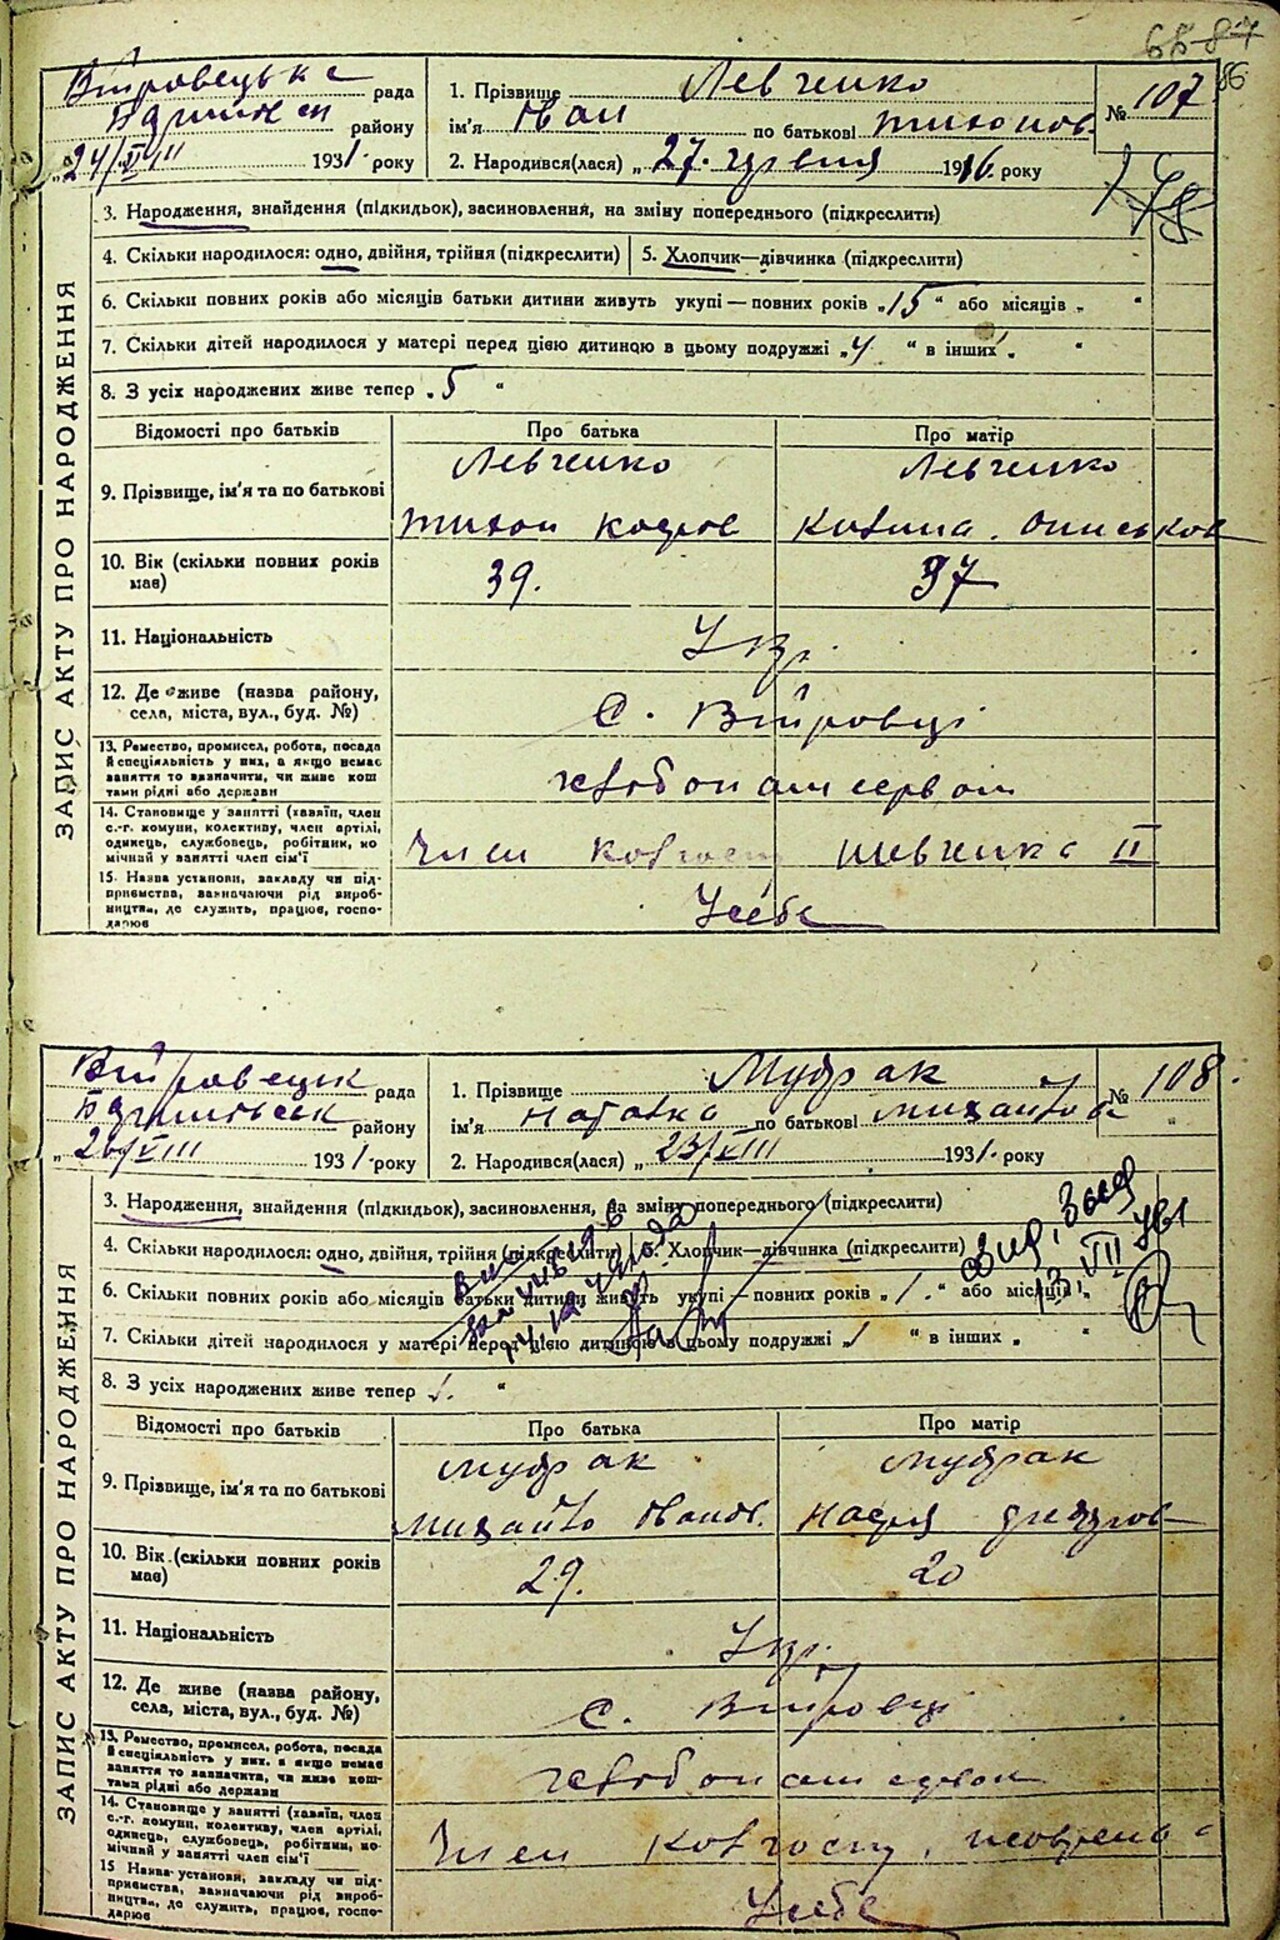 86
Війтовецька рада
району
„24/VIII 1931. року
1. Прізвище Левченко
ім'я Іван по батькові Тихонов.
2. Народився(лася) „27. червня 1916. року
№ 107
3. Народження, знайдення (підкидьок), засиновлення, на зміну попереднього (підкреслити)
4. Скільки народилося: одно, двійня, трійня (підкреслити)
5. Хлопчик—дівчинка (підкреслити)
6. Скільки повних років або місяців батьки дитини живуть укупі — повних років „15 “ або місяців „ “
7. Скільки дітей народилося у матері перед цією дитиною в цьому подружжі „4 “ в інших „ “
8. З усіх народжених живе тепер „5 “
ЗАПИС АКТУ ПРО НАРОДЖЕННЯ
Відомості про батьків
Про батька
Про матір
9. Прізвище, ім'я та по батькові
Левченко
Тихон
Левченко
10. Вік (скільки повних років
має)
39.
37
11. Національність
Укр.
12. Де живе (назва району,
села, міста, вул., буд. №)
с. Війтовці
13. Ремество, промисел, робота, посада
й спеціяльність у них, а якщо немає
заняття то зазначити, чи живе кош
тами рідні або держави
хлібопашеством
14. Становище у занятті (хазяїн, член
с.-г. комуни, колективу, член артілі,
одинець, службовець, робітник, по
мічний у занятті член сім'ї
Член колгоспу Шевченка II
15. Назва установи, закладу чи під-
приємства, зазначаючи рід вироб-
ництва, де служить, працює, госпо-
дарює
У себе
Війтовецьк рада
району
„26/VIII 1931. року
1. Прізвище Мудрак
ім'я Наталка по батькові Михайлов
2. Народився(лася) „23/VIII 1931. року
№ 108.
3. Народження, знайдення (підкидьок), засиновлення, на зміну попереднього (підкреслити)
4. Скільки народилося: одно, двійня, трійня (підкреслити)
5. Хлопчик—дівчинка (підкреслити)
6. Скільки повних років або місяців батьки дитини живуть укупі — повних років „1.“ або місяців „
7. Скільки дітей народилося у матері перед цією дитиною в цьому подружжі „1 “ в інших „ “
8. З усіх народжених живе тепер 1. “
ЗАПИС АКТУ ПРО НАРОДЖЕННЯ
Відомості про батьків
Про батька
Про матір
9. Прізвище, ім'я та по батькові
Мудрак
Михайло Іванов.
Мудрак
10. Вік (скільки повних років
має)
29.
20
11. Національність
Укр.
12. Де живе (назва району,
села, міста, вул., буд. №)
с. Війтовці
13. Ремество, промисел, робота, посада
й спеціяльність у них, а якщо немає
заняття то зазначити, чи живе кош-
тами рідні або держави
14. Становище у занятті (хазяїн, член
с.-г. комуни, колективу, член артілі,
одинець, службовець, робітник, по-
мічний у занятті член сім'ї
Член колгоспу
15 Назва установи, закладу чи під-
приємства, зазначаючи рід вироб-
ництва, де служить, працює, госпо-
дарює
У себе